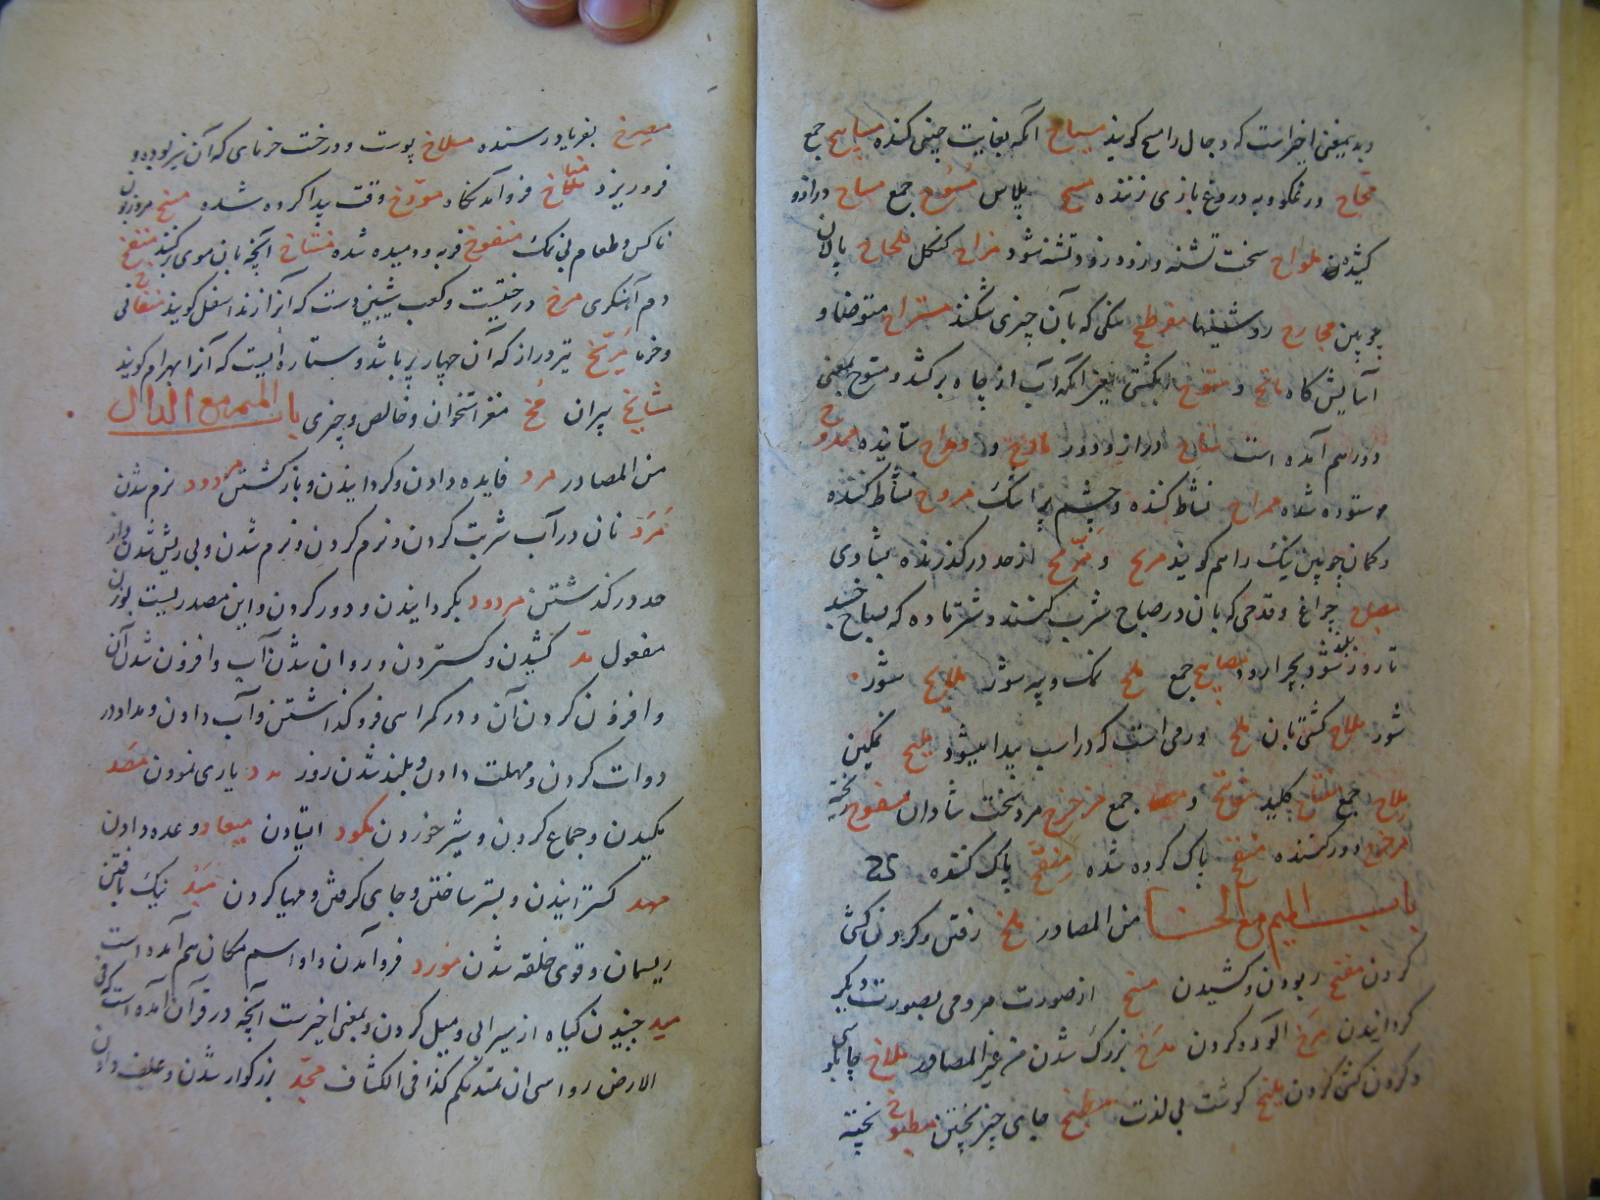 و بدیمعنی اخیرست که دجال را مسیح گویند مسیاح آنکه بغایت چنینی کننده مسابیح جمع
مجاح و دروغ بازی زننده مسح پلاس مسوح جمع مساح درازو
کشیده ملواح سخت تشنه و زود زود تشنه شود مزاح کنگل ملحاح پالان
چوبین مجارح روشنیها مفرطح سنگی که بآن چیزی شکنند مستراح متوضا و
آسایش گاه ماتح و متوح آبکشی یعنی آنکه آب از چاه برکشد و متوح بمعنی
دور هم آمده است دراز و دور مادح و مداح ستاینده ممدوح
ستوده شده ممراح نشاط کننده و چشم پر اشک مروح نشاط کننده
و کمان چوبین نیک را هم گویند مرح و از حد درگذرنده بشادی
مصباح چراغ و قدحی که بآن در صباح شرب کنند و شتر ماده که صباح خسبد
تا روز بلند شود بچرا رود مصابیح جمع ملح نمک و پیه شور ملایح شور
شور ملاح کشتی بان ملح ورمی است که در اسب پیدا میشود ملیح نمکین
ملاح جمع مفتاح کلید مفاتح و جمع مرد سخت شادان مسفوح ریخته
دور کننده منقح پاک کرده شده منقح پاک کننده
باب المیم مع الخا من المصادر ملخ رفتن و کردن کشی
کردن ربودن و کشیدن مسخ از صورت مردمی بصورت دیگر
گردانیدن مرخ آلوده کردن مدخ بزرگ شدن من غیر المصادر ملاخ چاپلوسی
و گردن کشی کردن ملیخ گوشت بی لذت مطبخ جای چیز پختن مطبوخ پخته
مصرخ بفریاد رسنده مسلاخ پوست و درخت خرمای که آن نیز بوده و
فرو ریزد مناخ فرو آمدنگاه مورخ وقت پیدا کرده شده مسیخ مرد زبون
ناکس و طعام بی نمک منفوخ فربه و دمیده شده منتاخ آنچه بآن موی کنند منفخ
دم آهنگری مرخ درختیست و کعب پیشینیست که آنرا زند اسفل گویند منفاخ نی
و خرما مریخ تیر دراز که آن چهار پر باشد و ستاره ایست که آنرا بهرام گویند
مشایخ پیران مخ مغز استخوان و خالص و چیزی باب المیم مع الدال
من المصادر مرد فایده دادن و گردانیدن و بازگشتن مردود نرم شدن
مرد نان در آب شربت کردن و نرم کردن و نرم شدن و بی ریش شدن و از
حد درگذشتن مردود بگردانیدن و دور کردن و این مصدریست بوزن
مفعول مد کشیدن و گستردن و روان شدن آب و افزون شدن آن
و افزون کردن آن و در گمراهی فرو گذاشتن و آب دادن و مداد در
دوات کردن و مهلت دادن و بلند شدن روز مدد یاری نمودن مصد
مکیدن و جماع کردن و شیر خوردن مکود ایستادن میعاد وعده دادن
مهد گسترانیدن و بستر ساختن و جای گرفتن و مهیا کردن مسد نیک بافتن
ریسمان و قوی خلقه شدن مورد فرو آمدن و او اسم مکان هم آمده است
مید جنبیدن گیاه از سیرابی و میل کردن و بمعنی اخیرست آنچه در قرآن آمده است که فی
الارض رواسی ان تمید بکم کذا فی الکشاف مجد بزرگوار شدن و علف دادن